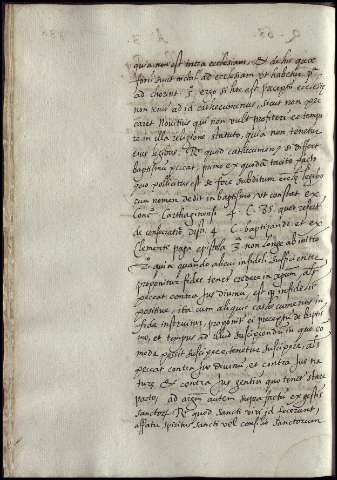 quia non est intra ecclesiam, Et de his quae
foris sunt nichil ad ecclesiam ut habetur p.
ad chorint. 5 ergo si hoc est praeceptū ecclesiae
non tenetur ad id cathecuminus, sicut non pec
caret Novitius qui non vult profiteri eo tempo
re in illa religione statuto, quia non tenetur
eius legibus. Rº quod cathecuminus si differt
baptismū peccat, primo ex quodā tacito pacto
quo pollicitus est se fore subditum eccle. legibus
cum nomen dedit in baptismo, ut constat ex
Conc. Carthaginensi 4. C. 85. quē refert
de consecratiō. dist. 4. C. baptizandi et ex
Clemente papa epistola 3. non longe ab initio
2º quia quando alicui infideli sufficienter
proponitur fides tenet credere eā
peccat contra Jus divinū, est infidelis
positive, ita cum aliquis cathecumenus in
fide instruitur, proponit ei praeceptū de baptis
mo, et tempus ad illud suscipiendū in quo co
mode possit suscipere, tenetur suscipere, aīs
peccat contra Jus divinū et contra Jus na
turae Et contra Jus gentiū quo tenet stare
pactis, ad argm̄ autem supra factū ex gestis
sanctorū Rº quod sancti viri id fecerunt,
afflatu spiritus sancti vel consilio sanctorum